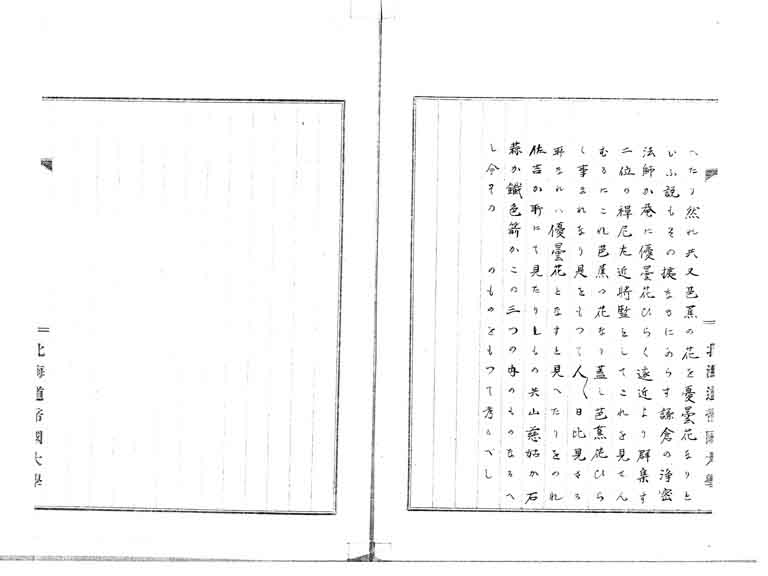 へたり然れ共又芭蕉の花を憂曇花なりと
いふ説もその據なきにあらす鎌倉の浄密
法師か菴に優曇花ひらく遠近より群集す
二位の禅尼左近將監をしてこれを見せん
むるにこれ芭蕉の花なり蓋し芭蕉花ひら
く事まれなり是をもつて人〱日比見さる
耳なれハ優曇花となすと見へたりをのれ
佐吉か所にて見たりしもの共山慈姑か石
蒜か鐵色箭かこの三つの内のものなるへ
し今その のものをもつて考ふべし
北海道帝國大學
北海道帝國大學